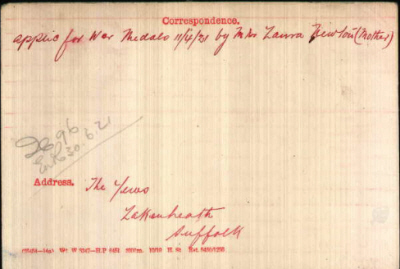 Correspondence.
applic for War Medals 11/4/21 by Mrs Laura Newton (Mother)
2696
30.6.21
Address. The Yews
Lakenheath
Suffolk